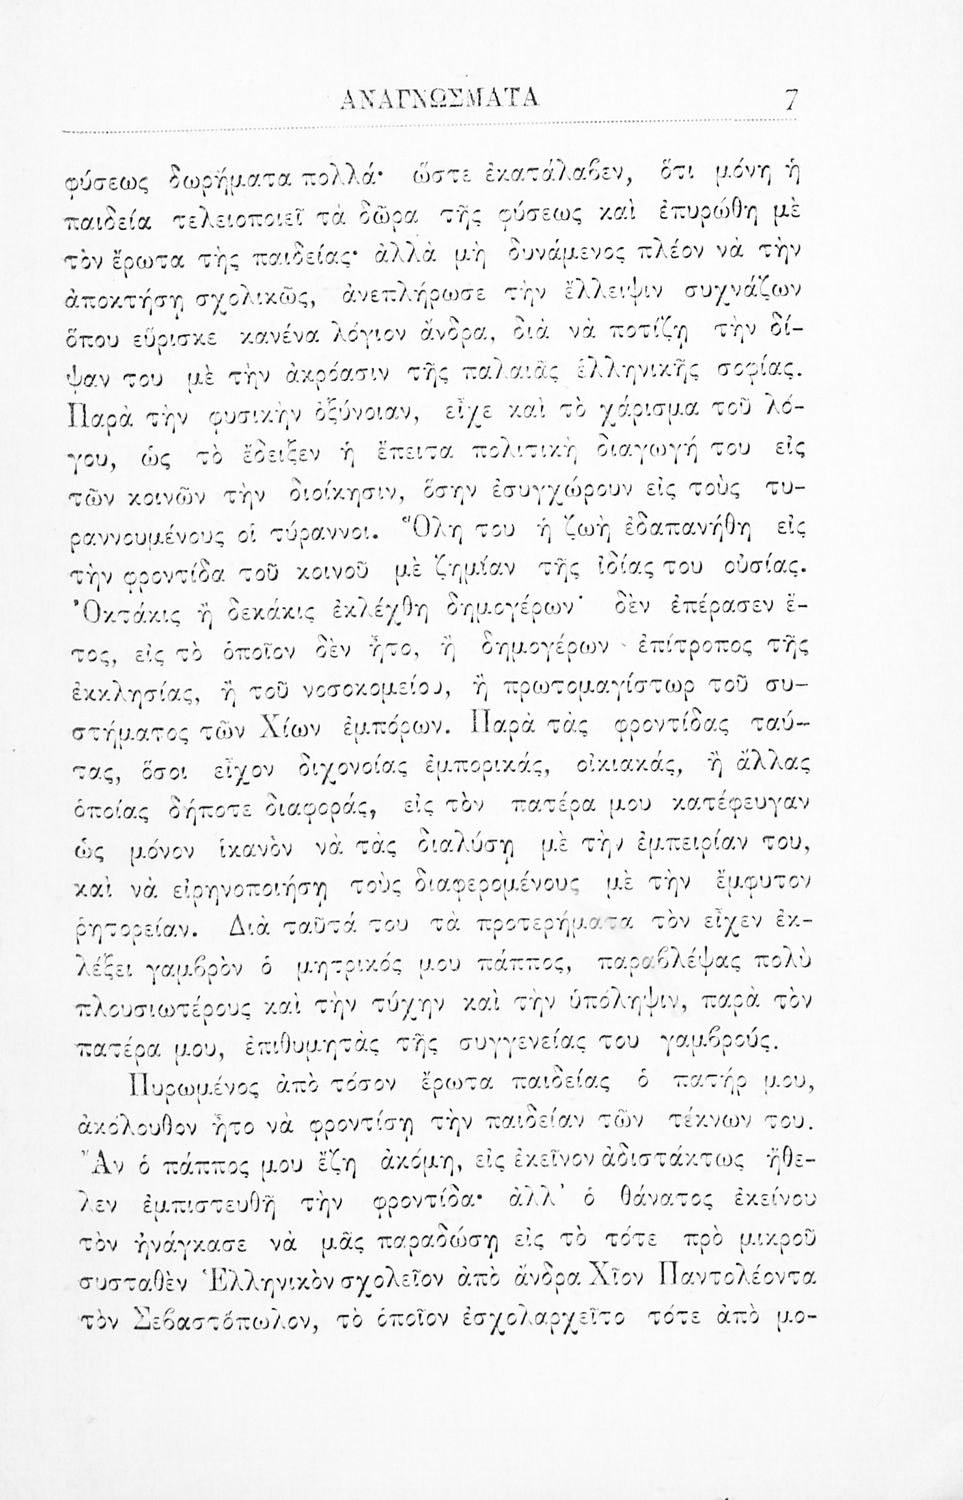 ΑΝΑΓΝΩΣΜΑΤΑ 7
φύσεως δωρήματα πολλά· ὥστε ἐκατάλαβεν, ὅτι μόνη ἡ
παιδεία τελειοποιεῖ τὰ δῶρα τῆς φύσεως καὶ ἐπυρώθη μὲ
τὸν ἔρωτα τῆς παιδείας· ἀλλὰ μὴ δυνάμενος πλέον νὰ τὴν
ἀποκτήσῃ σχολικῶς, ἀνεπλήρωσε τὴν ἔλλειψιν συχνάζων
ὅπου εὕρισκε κανένα λόγιον ἄνδρα, διὰ νὰ ποτίζῃ τὴν δί-
ψαν του μὲ τὴν ἀκρόασιν τῆς παλαιᾶς ἑλληνικῆς σοφίας.
Παρὰ τὴν φυσικὴν ὀξύνοιαν, εἶχε καὶ τὸ χάρισμα τοῦ λό-
γου, ὡς τὸ ἔδειξεν ἡ ἔπειτα πολιτικὴ διαγωγή του εἰς
τῶν κοινῶν τὴν διοίκησιν, ὅσην ἐσυγχώρουν εἰς τοὺς τυ-
ραννουμένους οἱ τύραννοι. Ὅλη του ἡ ζωὴ ἐδαπανήθη εἰς
τὴν φροντίδα τοῦ κοινοῦ μὲ ζημίαν τῆς ἰδίας του οὐσίας.
Ὀκτάκις ἢ δεκάκις ἐκλέχθη δημογέρων· δὲν ἐπέρασεν ἔ-
τος, εἰς τὸ ὁποῖον δὲν ἦτο, ἢ δημογέρων · ἐπίτροπος τῆς
ἐκκλησίας, ἢ τοῦ νοσοκομείου, ἢ πρωτομαγίστωρ τοῦ συ-
στήματος τῶν Χίων ἐμπόρων. Παρὰ τὰς φροντίδας ταύ-
τας, ὅσοι εἶχον διχονοίας ἐμπορικάς, οἰκιακάς, ἢ ἄλλας
ὁποίας δήποτε διαφοράς, εἰς τὸν πατέρα μου κατέφευγαν
ὡς μόνον ἱκανὸν νὰ τὰς διαλύσῃ μὲ τὴν ἐμπειρίαν του,
καὶ νὰ εἰρηνοποιήσῃ τοὺς διαφερομένους μὲ τὴν ἔμφυτον
ῥητορείαν. Διὰ ταῦτά του τὰ προτερήματα τὸν εἶχεν ἐκ-
λέξει γαμβρὸν ὁ μητρικός μου πάππος, παραβλέψας πολὺ
πλουσιωτέρους καὶ τὴν τύχην καὶ τὴν ὑπόληψιν, παρὰ τὸν
πατέρα μου, ἐπιθυμητὰς τῆς συγγενείας του γαμβρούς.
Πυρωμένος ἀπὸ τόσον ἔρωτα παιδείας ὁ πατήρ μου,
ἀκόλουθον ἦτο νὰ φροντίσῃ τὴν παιδείαν τῶν τέκνων του.
Ἂν ὁ πάππος μου ἔζη ἀκόμη, εἰς ἐκεῖνον ἀδιστάκτως ἤθε-
λεν ἐμπιστευθῆ τὴν φροντίδα· ἀλλ' ὁ θάνατος ἐκείνου
τὸν ἠνάγκασε νὰ μᾶς παραδώσῃ εἰς τὸ τότε πρὸ μικροῦ
συσταθὲν Ἑλληνικὸν σχολεῖον ἀπὸ ἄνδρα Χῖον Παντολέοντα
τὸν Σεβαστόπωλον, τὸ ὁποῖον ἐσχολαρχεῖτο τότε ἀπὸ μο-